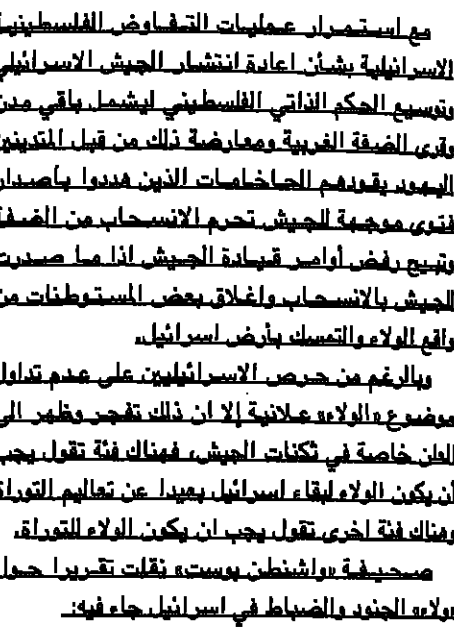 مع استمرار عمليات التفاوض الفلسطينية
الاسرائيلية بشأن اعادة انتشار الجيش الاسرائيلي
وتوسيع الحكم الذاتي الفلسطيني ليشمل باقي مدن
وقرى الضفة الغربية ومعارضة ذلك من قبل المتدينين
اليهود يقودهم الحاخامات الذين هددوا باصدار
فتوى موجهة للجيش تحرم الانسحاب من الضفة
وتبيح رفض أوامر قيادة الجيش اذا ما صدرت
للجيش بالانسحاب واغلاق بعض المستوطنات من
واقع الولاء والتمسك بأرض اسرائيل.
وبالرغم من حرص الاسرائيليين على عدم تداول
موضوع «الولاء» علانية إلا ان ذلك تفجر وظهر الى
العلن خاصة في ثكنات الجيش، فهناك فئة تقول يجب
أن يكون الولاء لبقاء اسرائيل بعيدا عن تعاليم التوراة
وهناك فئة اخرى تقول يجب ان يكون الولاء للتوراة.
صحيفة «واشنطن بوست» نقلت تقريرا حول
«ولاء» الجنود والضباط في اسرائيل جاء فيه: